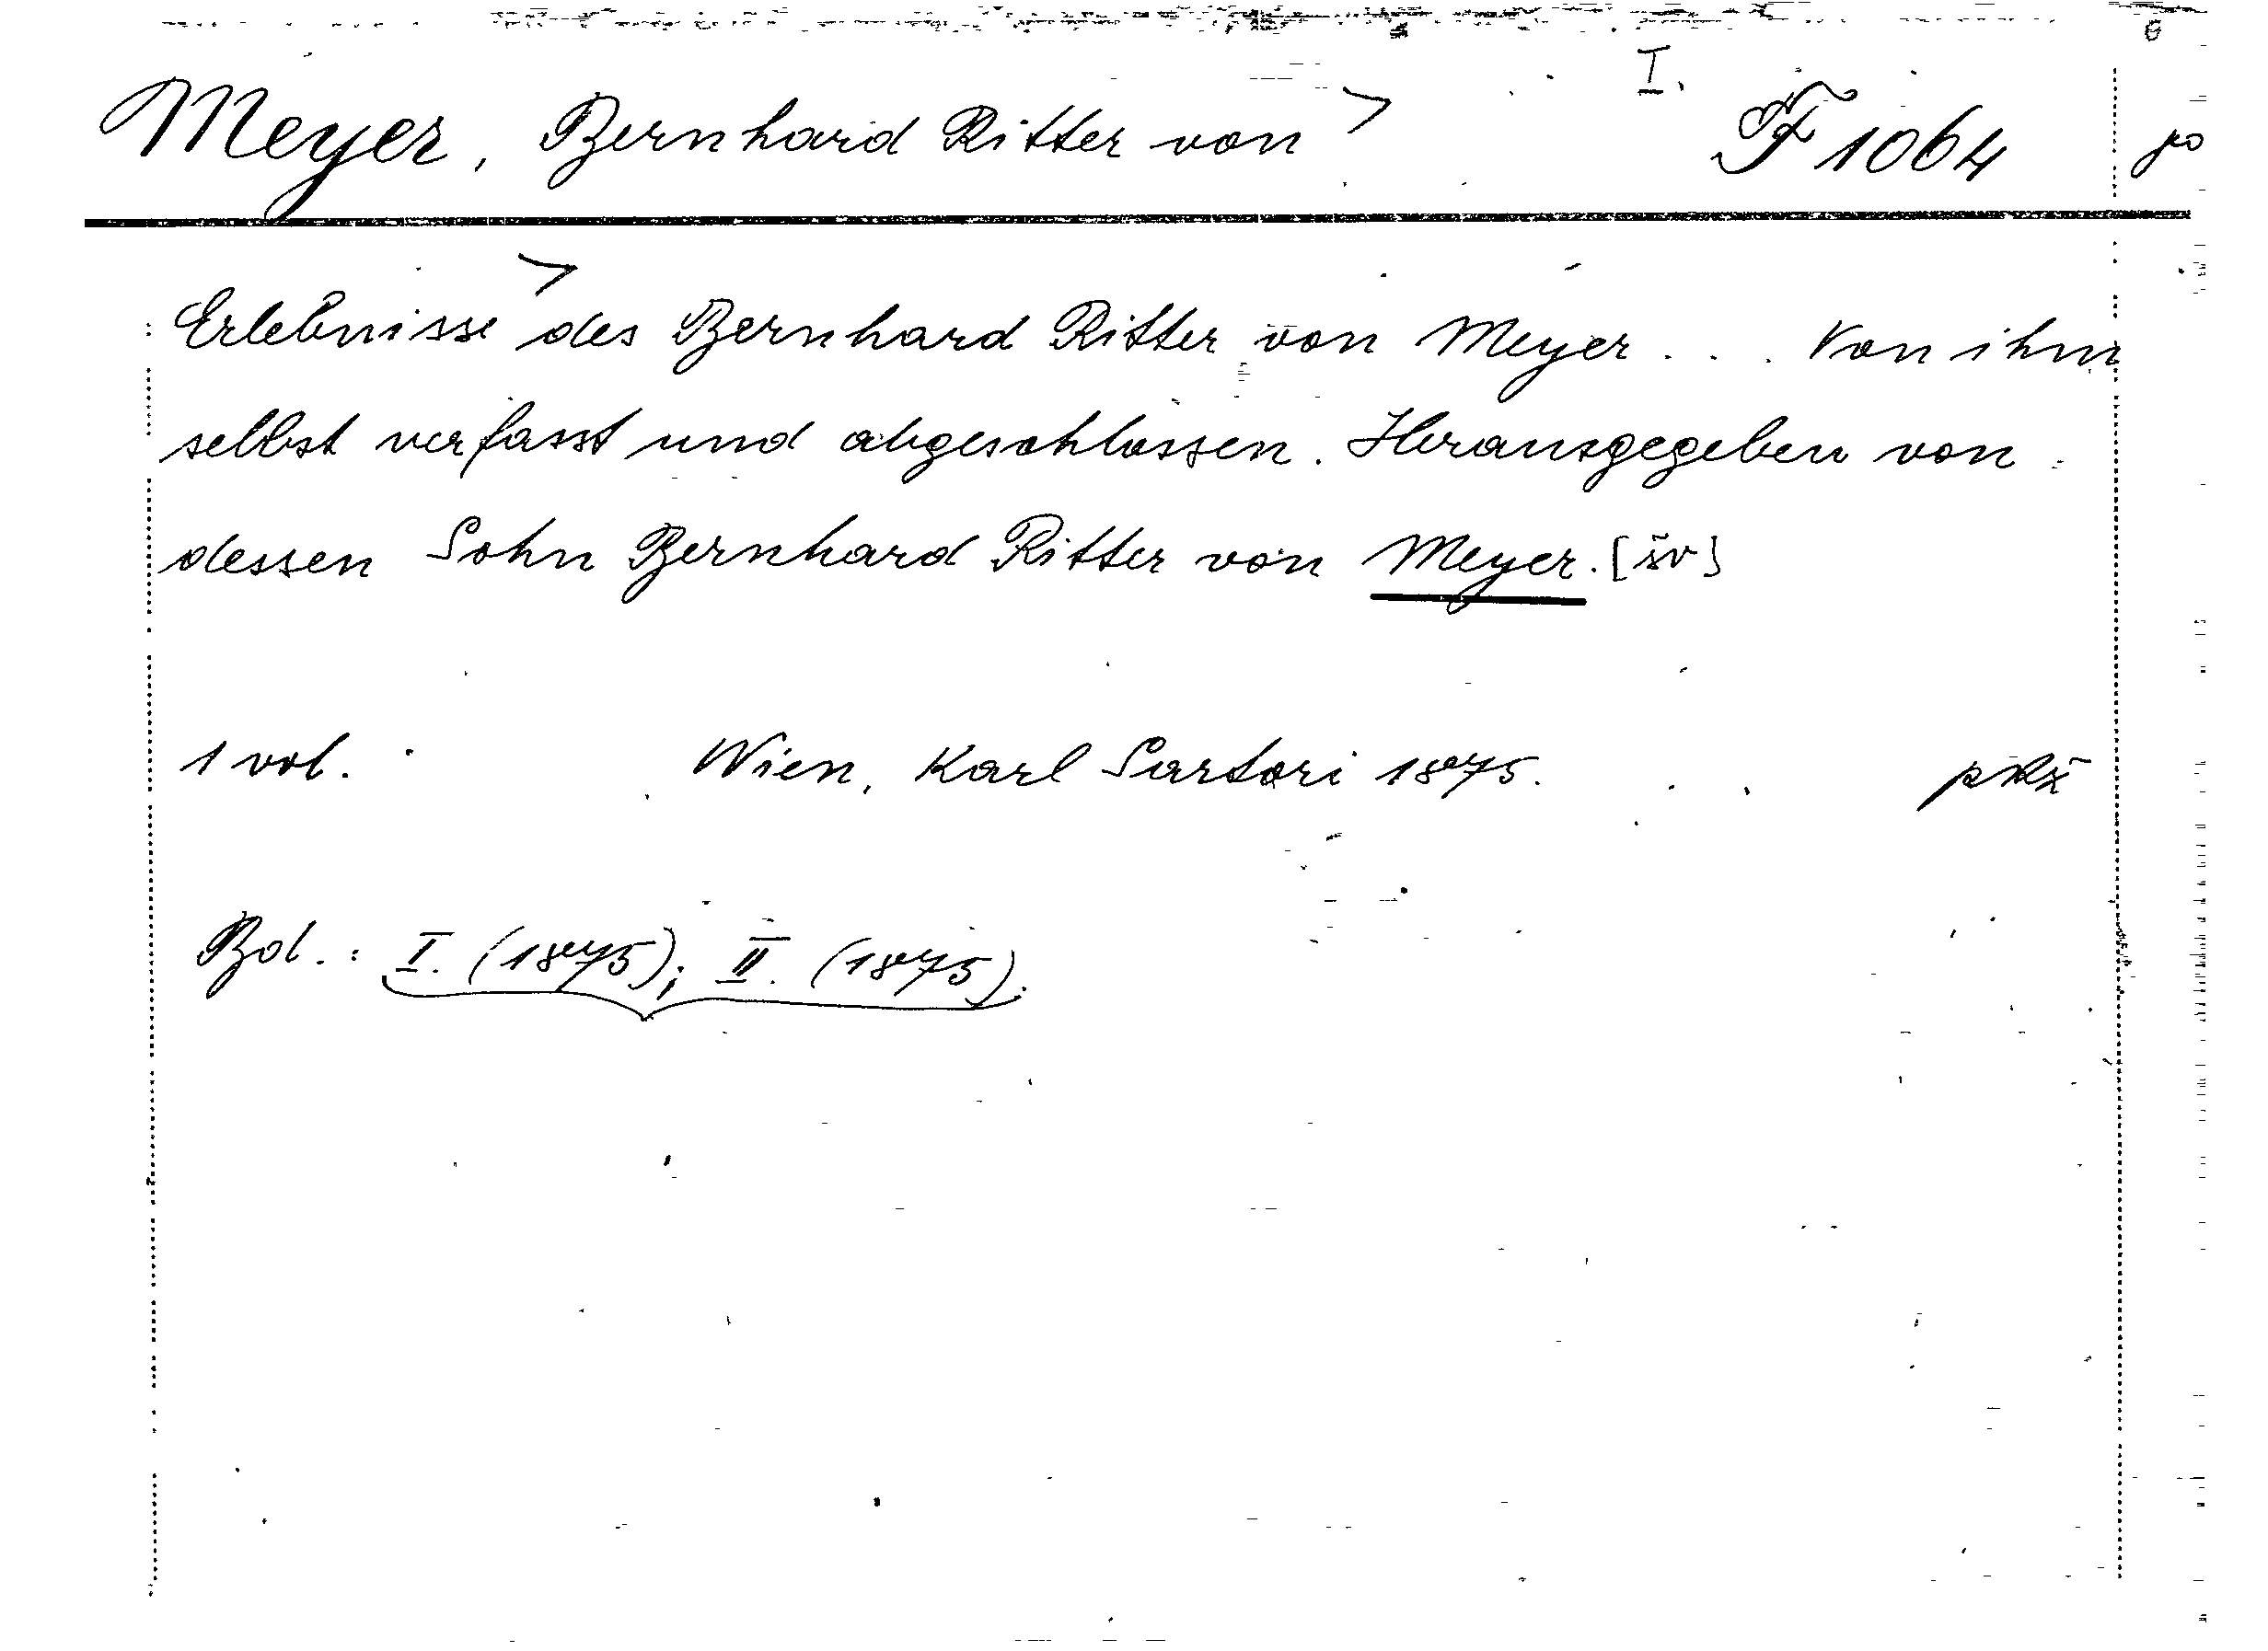 I.
Meyer, Bernhard Ritter von > F 1064 po
Erlebnisse > des Bernhard Ritter von Meyer . . . Von ihm
selbst verfasst und abgeschlossen. Herausgegeben von
dessen Sohn Bernhard Ritter von Meyer. [šv]
1 vol. Wien, Karl Sartori 1875.
Bd. : I. (1875); II. (1875).